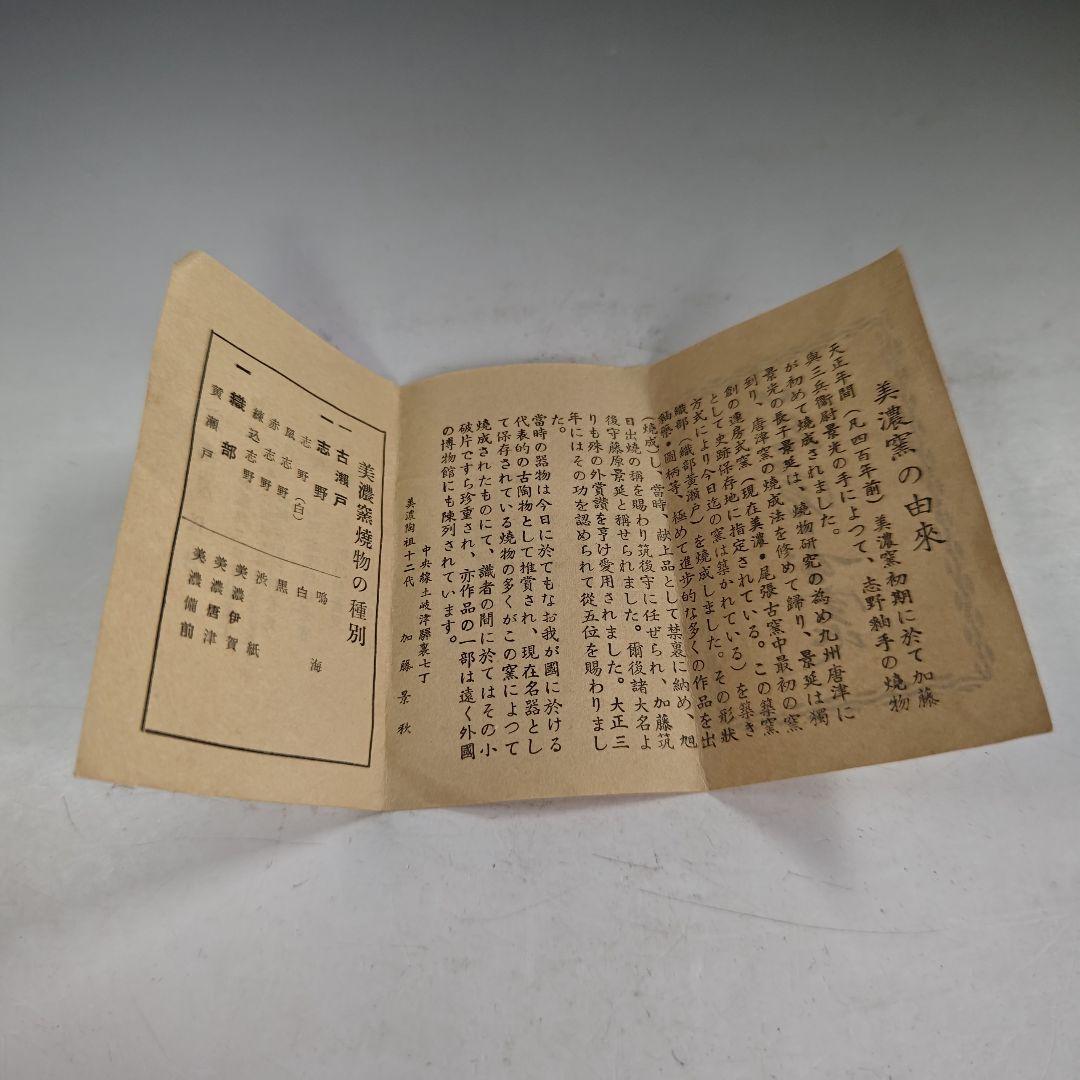 美濃窯の由來
天正年間（凡四百年前）美濃窯初期に於て加藤
與三兵衞尉景光の手によつて、志野釉手の燒物
が初めて燒成されました。
景光の長子景延は、燒物研究の為め九州唐津に
到り、唐津窯の燒成法を修めて歸り、景延は獨
創の連房式窯（現在美濃・尾張古窯中最初の窯
として史跡保存地に指定されている。この築窯
方式により今日迄の窯は築かれている）を築き
織部（織部黄瀬戸）を燒成しました。その形狀
釉藥・圖柄等、極めて進步的な多くの作品を出
（燒成）し、當時、献上品として禁裏に納め、旭
日出燒の稱を賜わり筑後守に任ぜられ、加藤筑
後守藤原景延と稱せられました。爾後諸大名よ
りも殊の外賞讚を亨け愛用されました。大正三
年にはその功を認められて從五位を賜わりまし
た。
當時の器物は今日に於てもなお我が國に於ける
代表的の古陶物として推賞され、現在名器とし
て保存されている燒物の多くがこの窯によつて
燒成されたものにて、識者の間に於てはその小
破片ですら珍重され、亦作品の一部は遠く外國
の博物館にも陳列されています。
中央線土岐津驛裏七丁
美濃陶祖十二代　加藤景秋
美濃窯燒物の種別
一古瀬戸
一志野
志野（白）
鼠志野
赤志野
練込志野
一織部
黄瀬戸
鳴海
白
黒
渋紙
美濃伊賀
美濃唐津
美濃備前